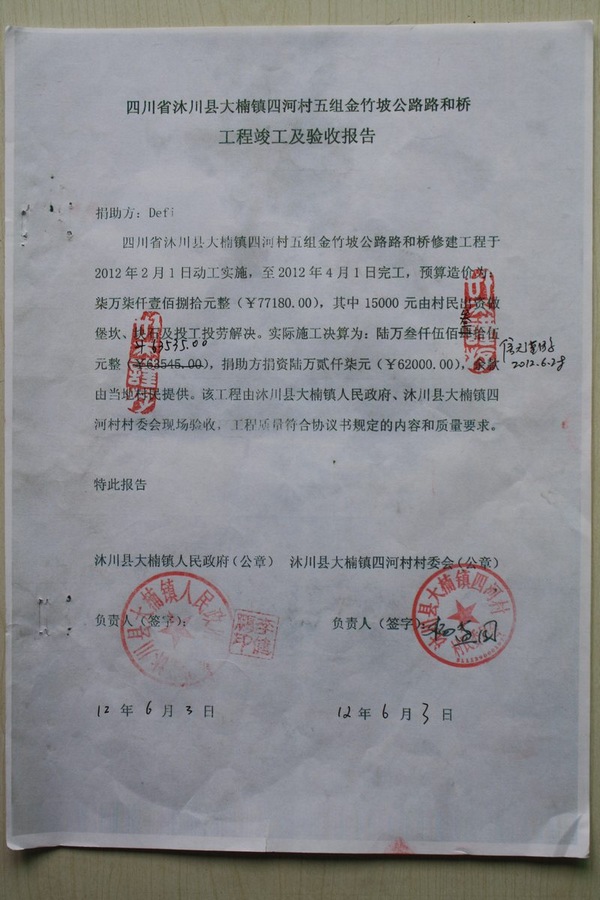 四川省沐川县大楠镇四河村五组金竹坡公路路和桥
工程竣工及验收报告
捐助方：Defi
四川省沐川县大楠镇四河村五组金竹坡公路路和桥修建工程于
2012年2月1日动工实施，至2012年4月1日完工，预算造价为：
柒万柒仟壹佰捌拾元整（￥77180.00），其中15000元由村民出资做
堡坎、及投工投劳解决。实际施工决算为：陆万叁仟伍佰叁拾伍
￥63535.00
元整（￥63545.00），捐助方捐资陆万贰仟柒元（￥62000.00），余款
2012.6.28
由当地村民提供。该工程由沐川县大楠镇人民政府、沐川县大楠镇四
河村村委会现场验收，工程质量符合协议书规定的内容和质量要求。
特此报告
沐川县大楠镇人民政府（公章） 沐川县大楠镇四河村村委会（公章）
负责人（签字）： 负责人（签字）：
沐川县大楠镇人民政
沐川县大楠镇四河村
12年6月3日 12年6月3日